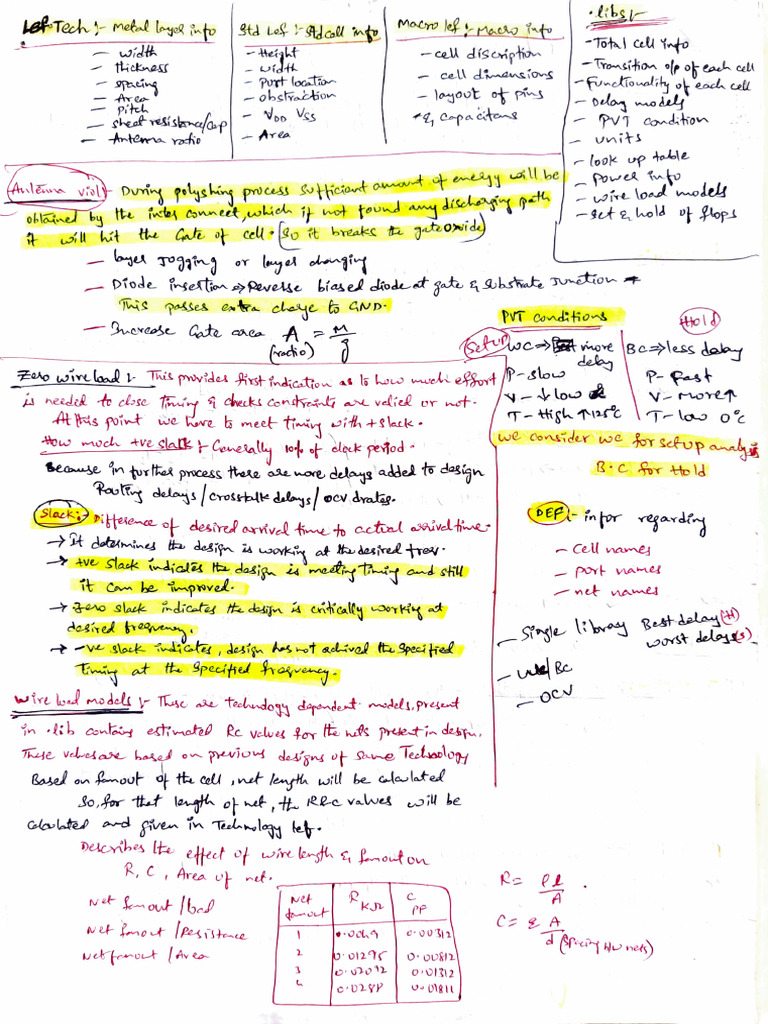 Lef:- Tech :- Metal layer info
- width
- thickness
- spacing
- Area
- pitch
- sheet resistance/cap
- Antenna ratio
Std Lef :- Std cell info
- Height
- width
- Port location
- obstraction
- VDD VSS
- Area
Macro lef :- Macro info
- cell discription
- cell dimensions
- layout of pins
& capacitans
.libs :-
- Total cell info
- Transition o/p of each cell
- Functionality of each cell
- Delay models
- PVT condition
- units
- look up table
- power info
- wire load models
- set & hold of flops
Antenna viol :- During polyshing process sufficient amount of energy will be
obtained by the inter connect, which if not found any discharging path
it will hit the Gate of cell. (so it breaks the gate oxide)
- layer Jogging or layer changing
- Diode insertion ⇒ Reverse biased diode at gate & substrate Junction
This passes extra charge to GND.
- Increase Gate area A (ratio) = M/g
PVT conditions
Setup
WC ⇒ more delay
P - slow
V - ↓ low
T - High ↑ 125°C
Hold
BC ⇒ less delay
P - Fast
V - More ↑
T - low 0°C
we consider wc for setup analysis
B.C for Hold
Zero wire load :- This provides first indication as to how much effort
is needed to close timing & checks constraints are valied or not.
At this point we have to meet timing with + slack.
How much +ve slack :- Generally 10% of clock period.
Because in further process there are more delays added to design
Routing delays / crosstalk delays / OCV drates.
Slack :- Difference of desired arrival time to actual arrival time.
→ It determines the design is working at the desired freq.
→ +ve slack indicates the design is meeting timing and still
it can be improved.
→ Zero slack indicates the design is critically working at
desired frequency.
→ -ve slack indicates, design has not achived the specified
Timing at the specified frequency.
DEF :- infor regarding
- cell names
- port names
- net names
- Single library Best delay (H)
worst delays (s)
- WC/BC
- OCV
Wire load models :- These are technology dependent models, present
in .lib contains estimated RC values for the nets present in design.
These values are based on previous designs of same Technology
Based on fanout of the cell, net length will be calculated
So, for that length of net, the RRC values will be
calculated and given in Technology lef.
Describes the effect of wire length & fanout on
R, C, Area of net.
Net fanout / load
Net fanout / Resistance
Net fanout / Area
Net fanout | R KΩ | C PF
1 | 0.0049 | 0.00312
2 | 0.01295 | 0.00812
3 | 0.02092 | 0.01312
4 | 0.0288 | 0.01811
R = ρl/A .
C = ε A/d (spacing b/w nets)